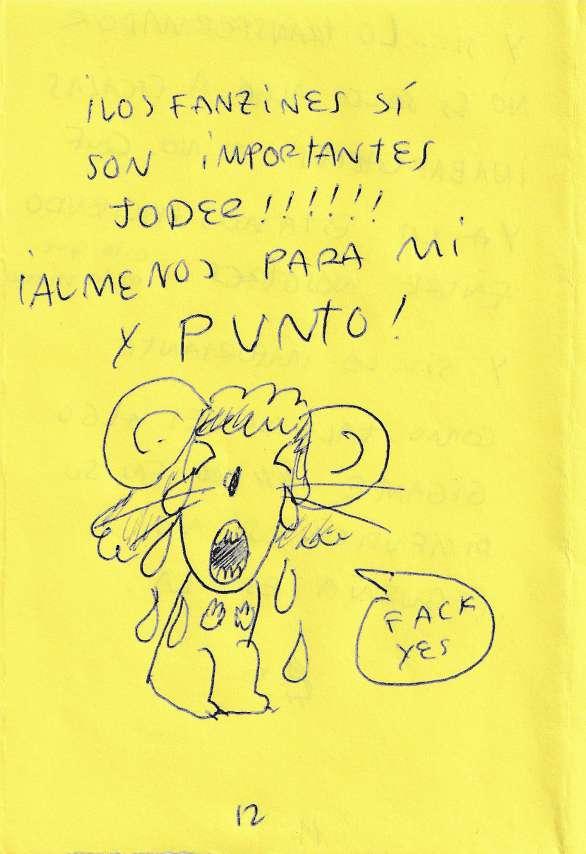 ¡LOS FANZINES SÍ
SON IMPORTANTES
JODER!!!!!!
¡ALMENOS PARA MI
Y PUNTO!
FACK
YES
12